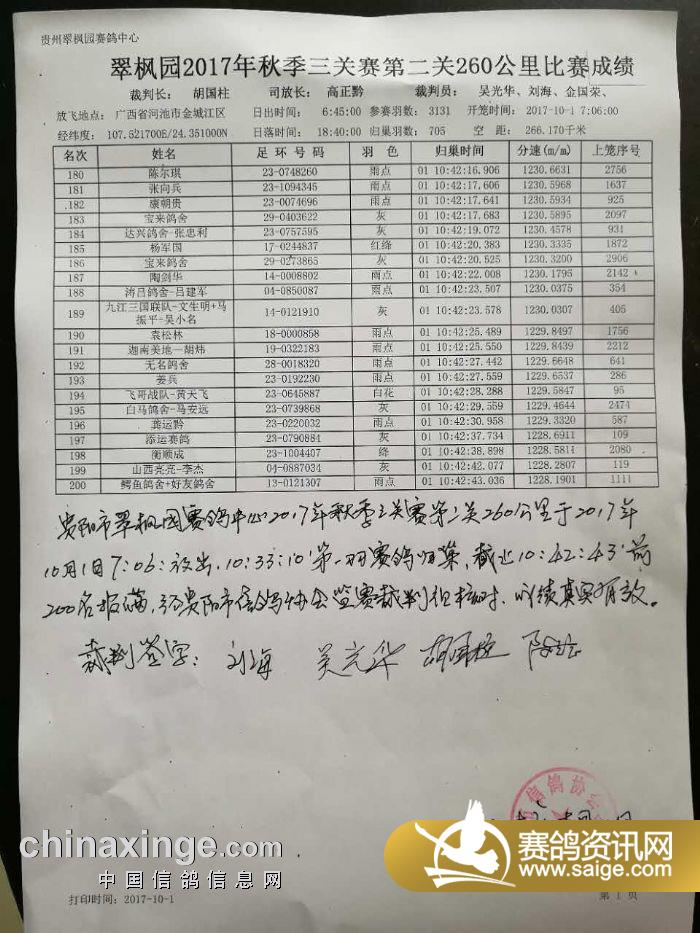 贵州翠枫园赛鸽中心
翠枫园2017年秋季三关赛第二关260公里比赛成绩
裁判长： 胡国柱 司放长： 高正黔 裁判员： 吴光华、刘海、金国荣、
放飞地点： 广西省河池市金城江区 日出时间： 6:45:00 参赛羽数： 3131 开笼时间： 2017-10-1 7:06:00
经纬度： 107.521700E/24.351000N 日落时间： 18:40:00 归巢羽数： 705 空 距： 266.170千米
名次 姓名 足环号码 羽色 归巢时间 分速(m/m) 上笼序号
180 陈尔琪 23-0748260 雨点 01 10:42:16.906 1230.6631 2756
181 张向兵 23-1094345 雨点 01 10:42:17.606 1230.5968 1637
182 康朝贵 23-0074696 雨点 01 10:42:17.641 1230.5934 925
183 宝来鸽舍 29-0403622 灰 01 10:42:17.683 1230.5895 2097
184 达兴鸽舍-张忠利 23-0757595 灰 01 10:42:19.072 1230.4578 931
185 杨军国 17-0244837 红绛 01 10:42:20.383 1230.3335 1872
186 宝来鸽舍 29-0273865 灰 01 10:42:20.525 1230.3200 2906
187 陶剑华 14-0008802 雨点 01 10:42:22.008 1230.1795 2142
188 涛吕鸽舍-吕建军 04-0850087 雨点 01 10:42:23.507 1230.0375 354
189 九江三国联队-文生明+马振平=吴小名 14-0121910 灰 01 10:42:23.578 1230.0307 405
190 袁松林 18-0000858 雨点 01 10:42:25.489 1229.8497 1756
191 迦南美地—胡炜 19-0322183 雨点 01 10:42:25.550 1229.8439 2212
192 无名鸽舍 28-0018320 雨点 01 10:42:27.442 1229.6648 641
193 姜兵 23-0192230 雨点 01 10:42:27.559 1229.6537 286
194 飞哥战队-黄天飞 23-0645887 白花 01 10:42:28.288 1229.5847 95
195 白马鸽舍-马安远 23-0739868 灰 01 10:42:29.559 1229.4644 2474
196 龚运黔 23-0220032 雨点 01 10:42:30.958 1229.3320 587
197 添运赛鸽 23-0790884 灰 01 10:42:37.734 1228.6911 109
198 衡顺成 23-1004407 绛 01 10:42:38.898 1228.5811 2080
199 山西亮亮-李杰 04-0887034 灰 01 10:42:42.077 1228.2807 119
200 鳄鱼鸽舍+好友鸽舍 13-0121307 雨点 01 10:42:43.036 1228.1901 1111
贵阳市翠枫园赛鸽中心2017年秋季三关赛第二关260公里于2017年
10月1日7:06:放出，10:33:10"第一羽赛鸽归巢，截止10:42:43"前
200名报满，经贵阳市信鸽协会监赛裁判组核对，成绩真实有效。
裁判签字： 刘海 吴光华 胡国柱
信鸽协会
chinaxinge.com
中国信鸽信息网
赛鸽资讯网
www.saige.com
打印时间：2017-10-1
第 1 页